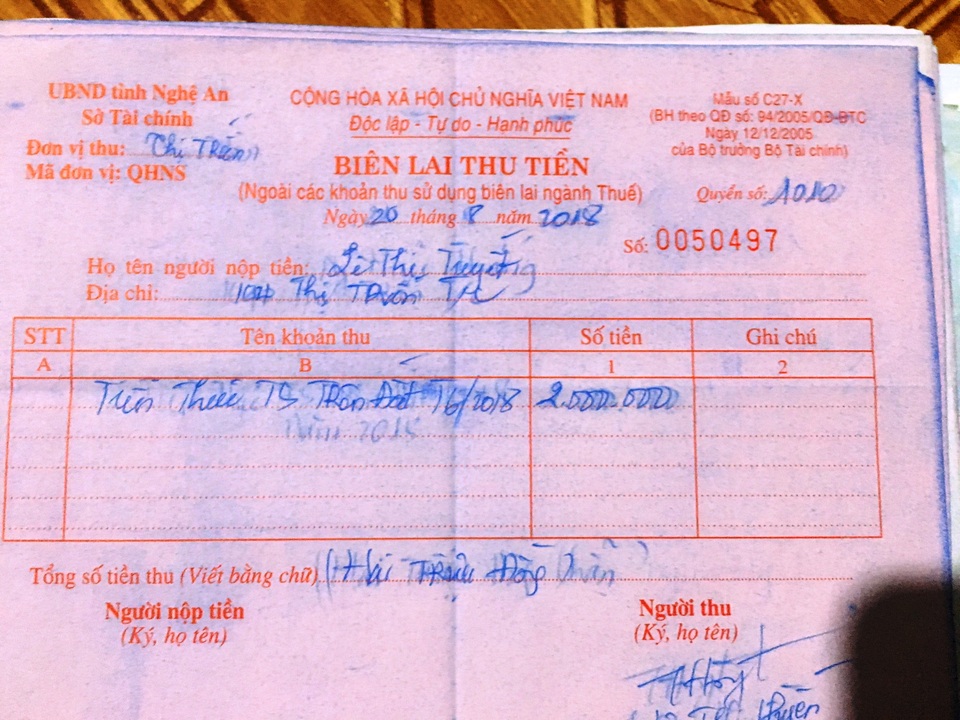 UBND tỉnh Nghệ An
Sở Tài chính
Đơn vị thu: Thị Trấn
Mã đơn vị: QHNS
CỘNG HÒA XÃ HỘI CHỦ NGHĨA VIỆT NAM
Độc lập - Tự do - Hạnh phúc
BIÊN LAI THU TIỀN
(Ngoài các khoản thu sử dụng biên lai ngành Thuế)
Ngày 20 tháng 8 năm 2018
Mẫu số C27-X
(BH theo QĐ số: 94/2005/QĐ-BTC
Ngày 12/12/2005
của Bộ trưởng Bộ Tài chính)
Quyển số: 1010
Số: 0050497
Họ tên người nộp tiền: Lê Thị Tuyết
Địa chỉ: Thị Trấn
STT Tên khoản thu Số tiền Ghi chú
A B 1 2
Tiền Thuê TS Trên Đất T6/2018 2.000.000
Năm 2018
Tổng số tiền thu (Viết bằng chữ) (Hai Triệu Đồng chẵn)
Người nộp tiền
(Ký, họ tên)
Người thu
(Ký, họ tên)